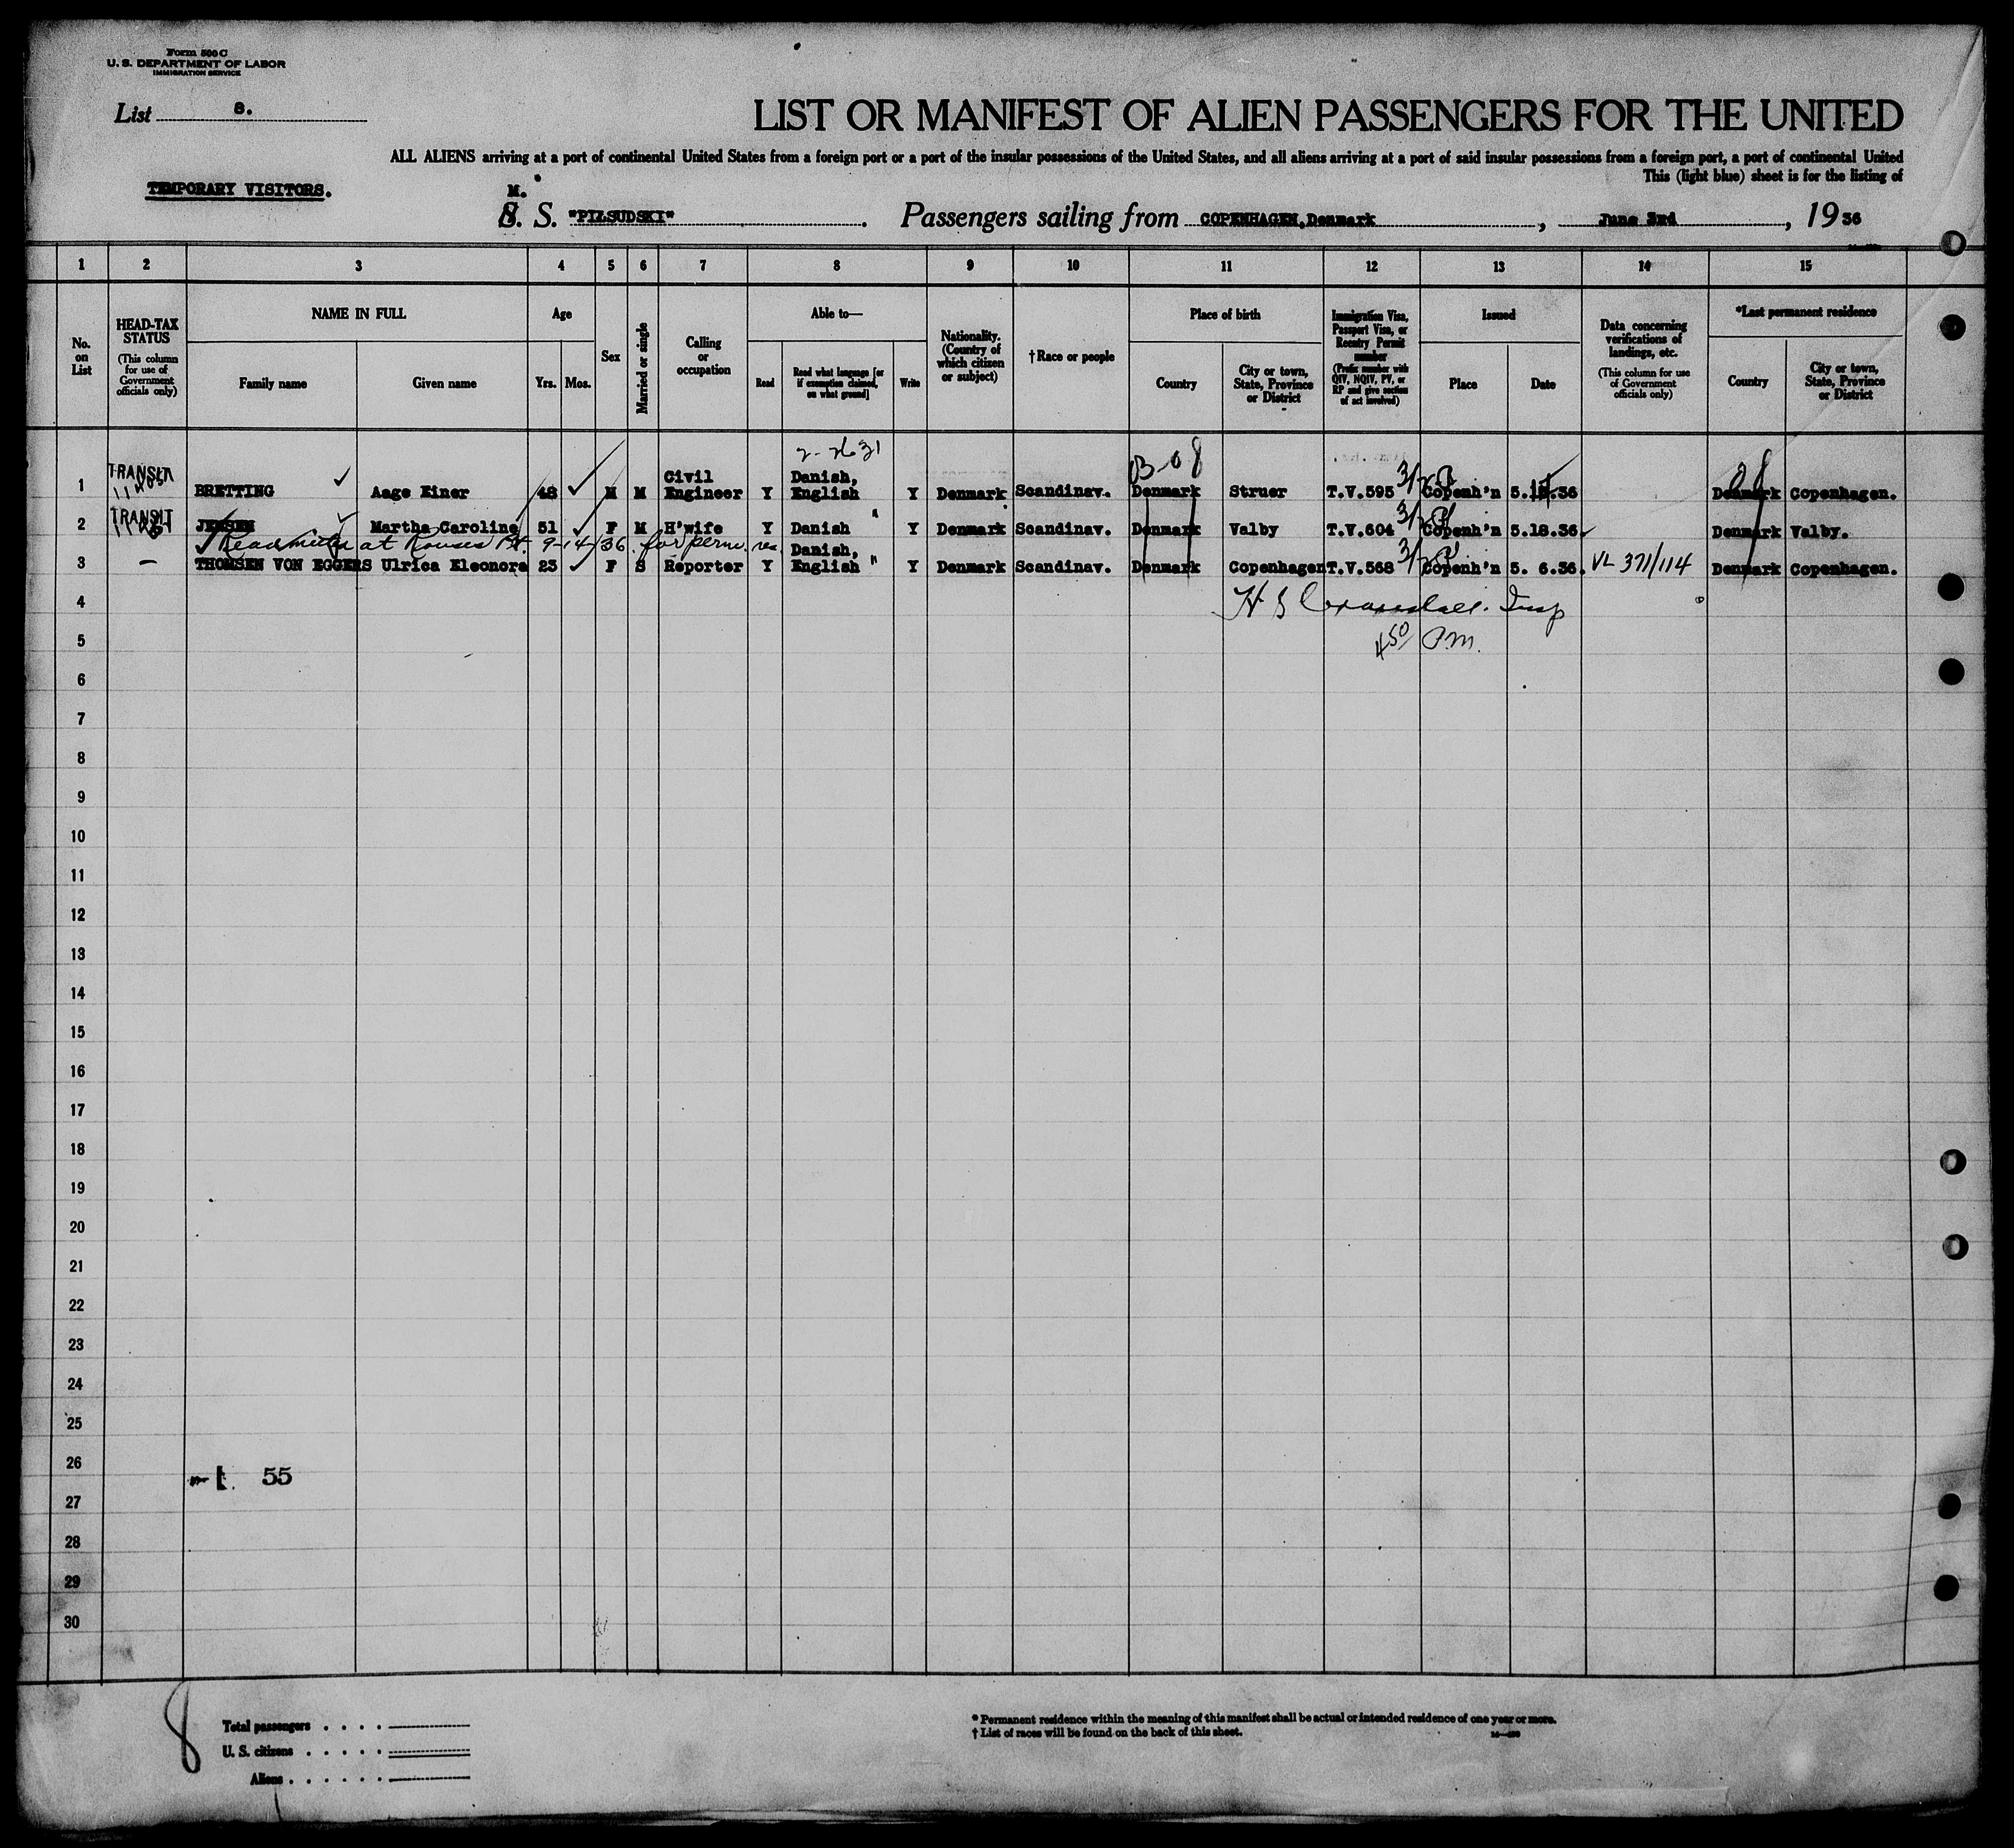 Form 500 C
U. S. DEPARTMENT OF LABOR
IMMIGRATION SERVICE
List 8.
LIST OR MANIFEST OF ALIEN PASSENGERS FOR THE UNITED
ALL ALIENS arriving at a port of continental United States from a foreign port or a port of the insular possessions of the United States, and all aliens arriving at a port of said insular possessions from a foreign port, a port of continental United
This (light blue) sheet is for the listing of
TEMPORARY VISITORS.
M.
S. S. "PIŁSUDSKI". Passengers sailing from COPENHAGEN, Denmark, June 3rd, 1936
1 2 3 4 5 6 7 8 9 10 11 12 13 14 15
No. on List
HEAD-TAX STATUS (This column for use of Government officials only)
NAME IN FULL
Family name
Given name
Age
Yrs.
Mos.
Sex
Married or single
Calling or occupation
Able to—
Read
Read what language [or if exemption claimed, on what ground]
Write
Nationality. (Country of which citizen or subject)
† Race or people
Place of birth
Country
City or town, State, Province or District
Immigration Visa, Passport Visa, or Reentry Permit number (Prefix number with QIV, NQIV, PV, or RP and give section of act involved)
Issued
Place
Date
Data concerning verifications of landings, etc. (This column for use of Government officials only)
*Last permanent residence
Country
City or town, State, Province or District
1 TRANSIT BRETTING Aage Einer 48 M M Civil Engineer Y Danish, English Y Denmark Scandinav. Denmark Struer T.V.595 Copenh'n 5.15.36 Denmark Copenhagen.
2 TRANSIT JENSEN Martha Caroline 51 F M H'wife Y Danish " Y Denmark Scandinav. Denmark Valby T.V.604 Copenh'n 5.18.36 Denmark Valby.
Readmitted at Rouses Pt. 9-14/36 for perm. res.
3 — THOMSEN VON EGGERS Ulrica Eleonora 23 F S Reporter Y Danish, English " Y Denmark Scandinav. Denmark Copenhagen T.V.568 Copenh'n 5. 6.36. VL 371/114 Denmark Copenhagen.
4
H S Crandall. Insp
5
4 50 P.M.
6
7
8
9
10
11
12
13
14
15
16
17
18
19
20
21
22
23
24
25
26
55
27
28
29
30
8
Total passengers . . . .
U. S. citizens . . . . .
Aliens . . . . . .
* Permanent residence within the meaning of this manifest shall be actual or intended residence of one year or more.
† List of races will be found on the back of this sheet.